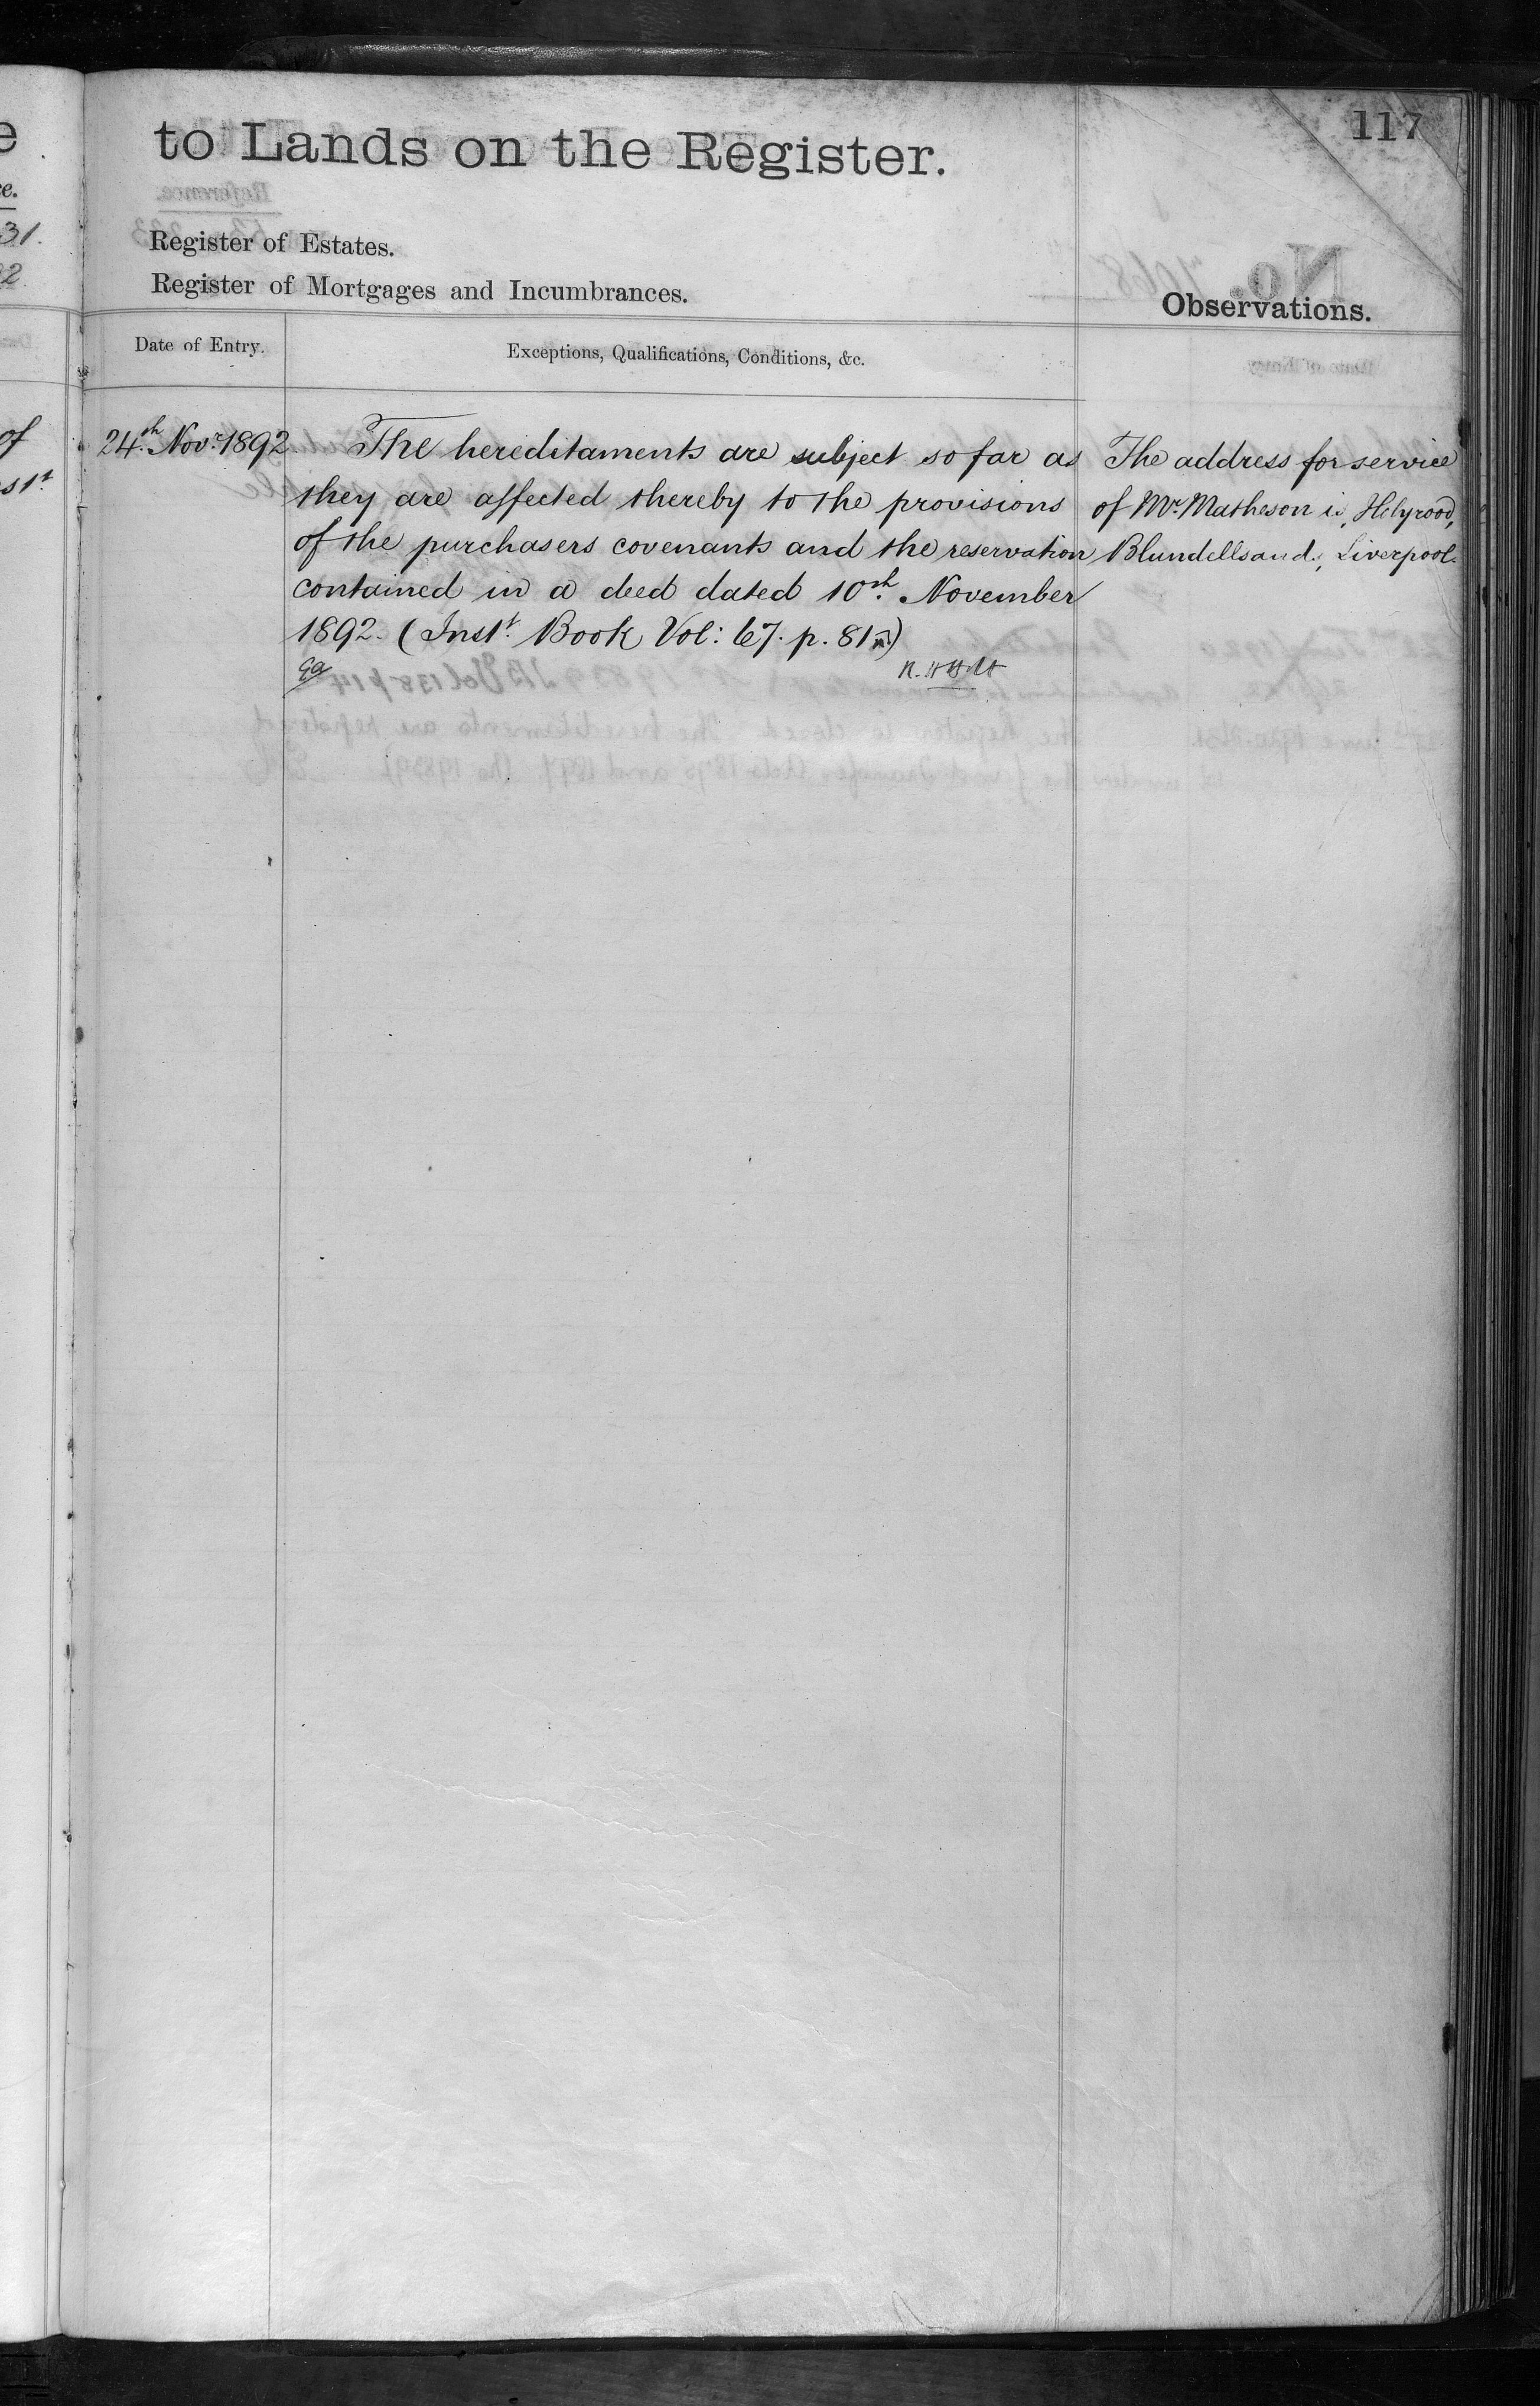 117
to Lands on the Register.
Register of Estates.
Register of Mortgages and Incumbrances.
Observations.
Date of Entry.
Exceptions, Qualifications, Conditions, &c.
24th Novr 1892
The hereditaments are subject so far as
they are affected thereby to the provisions
of the purchasers covenants and the reservation
contained in a deed dated 10th November
1892. (Inst. Book Vol: 67. p. 81
The address for service
of Mr Matheson is, Holyrood,
Blundellsands, Liverpool.
e
e.
31.
2.
of
st